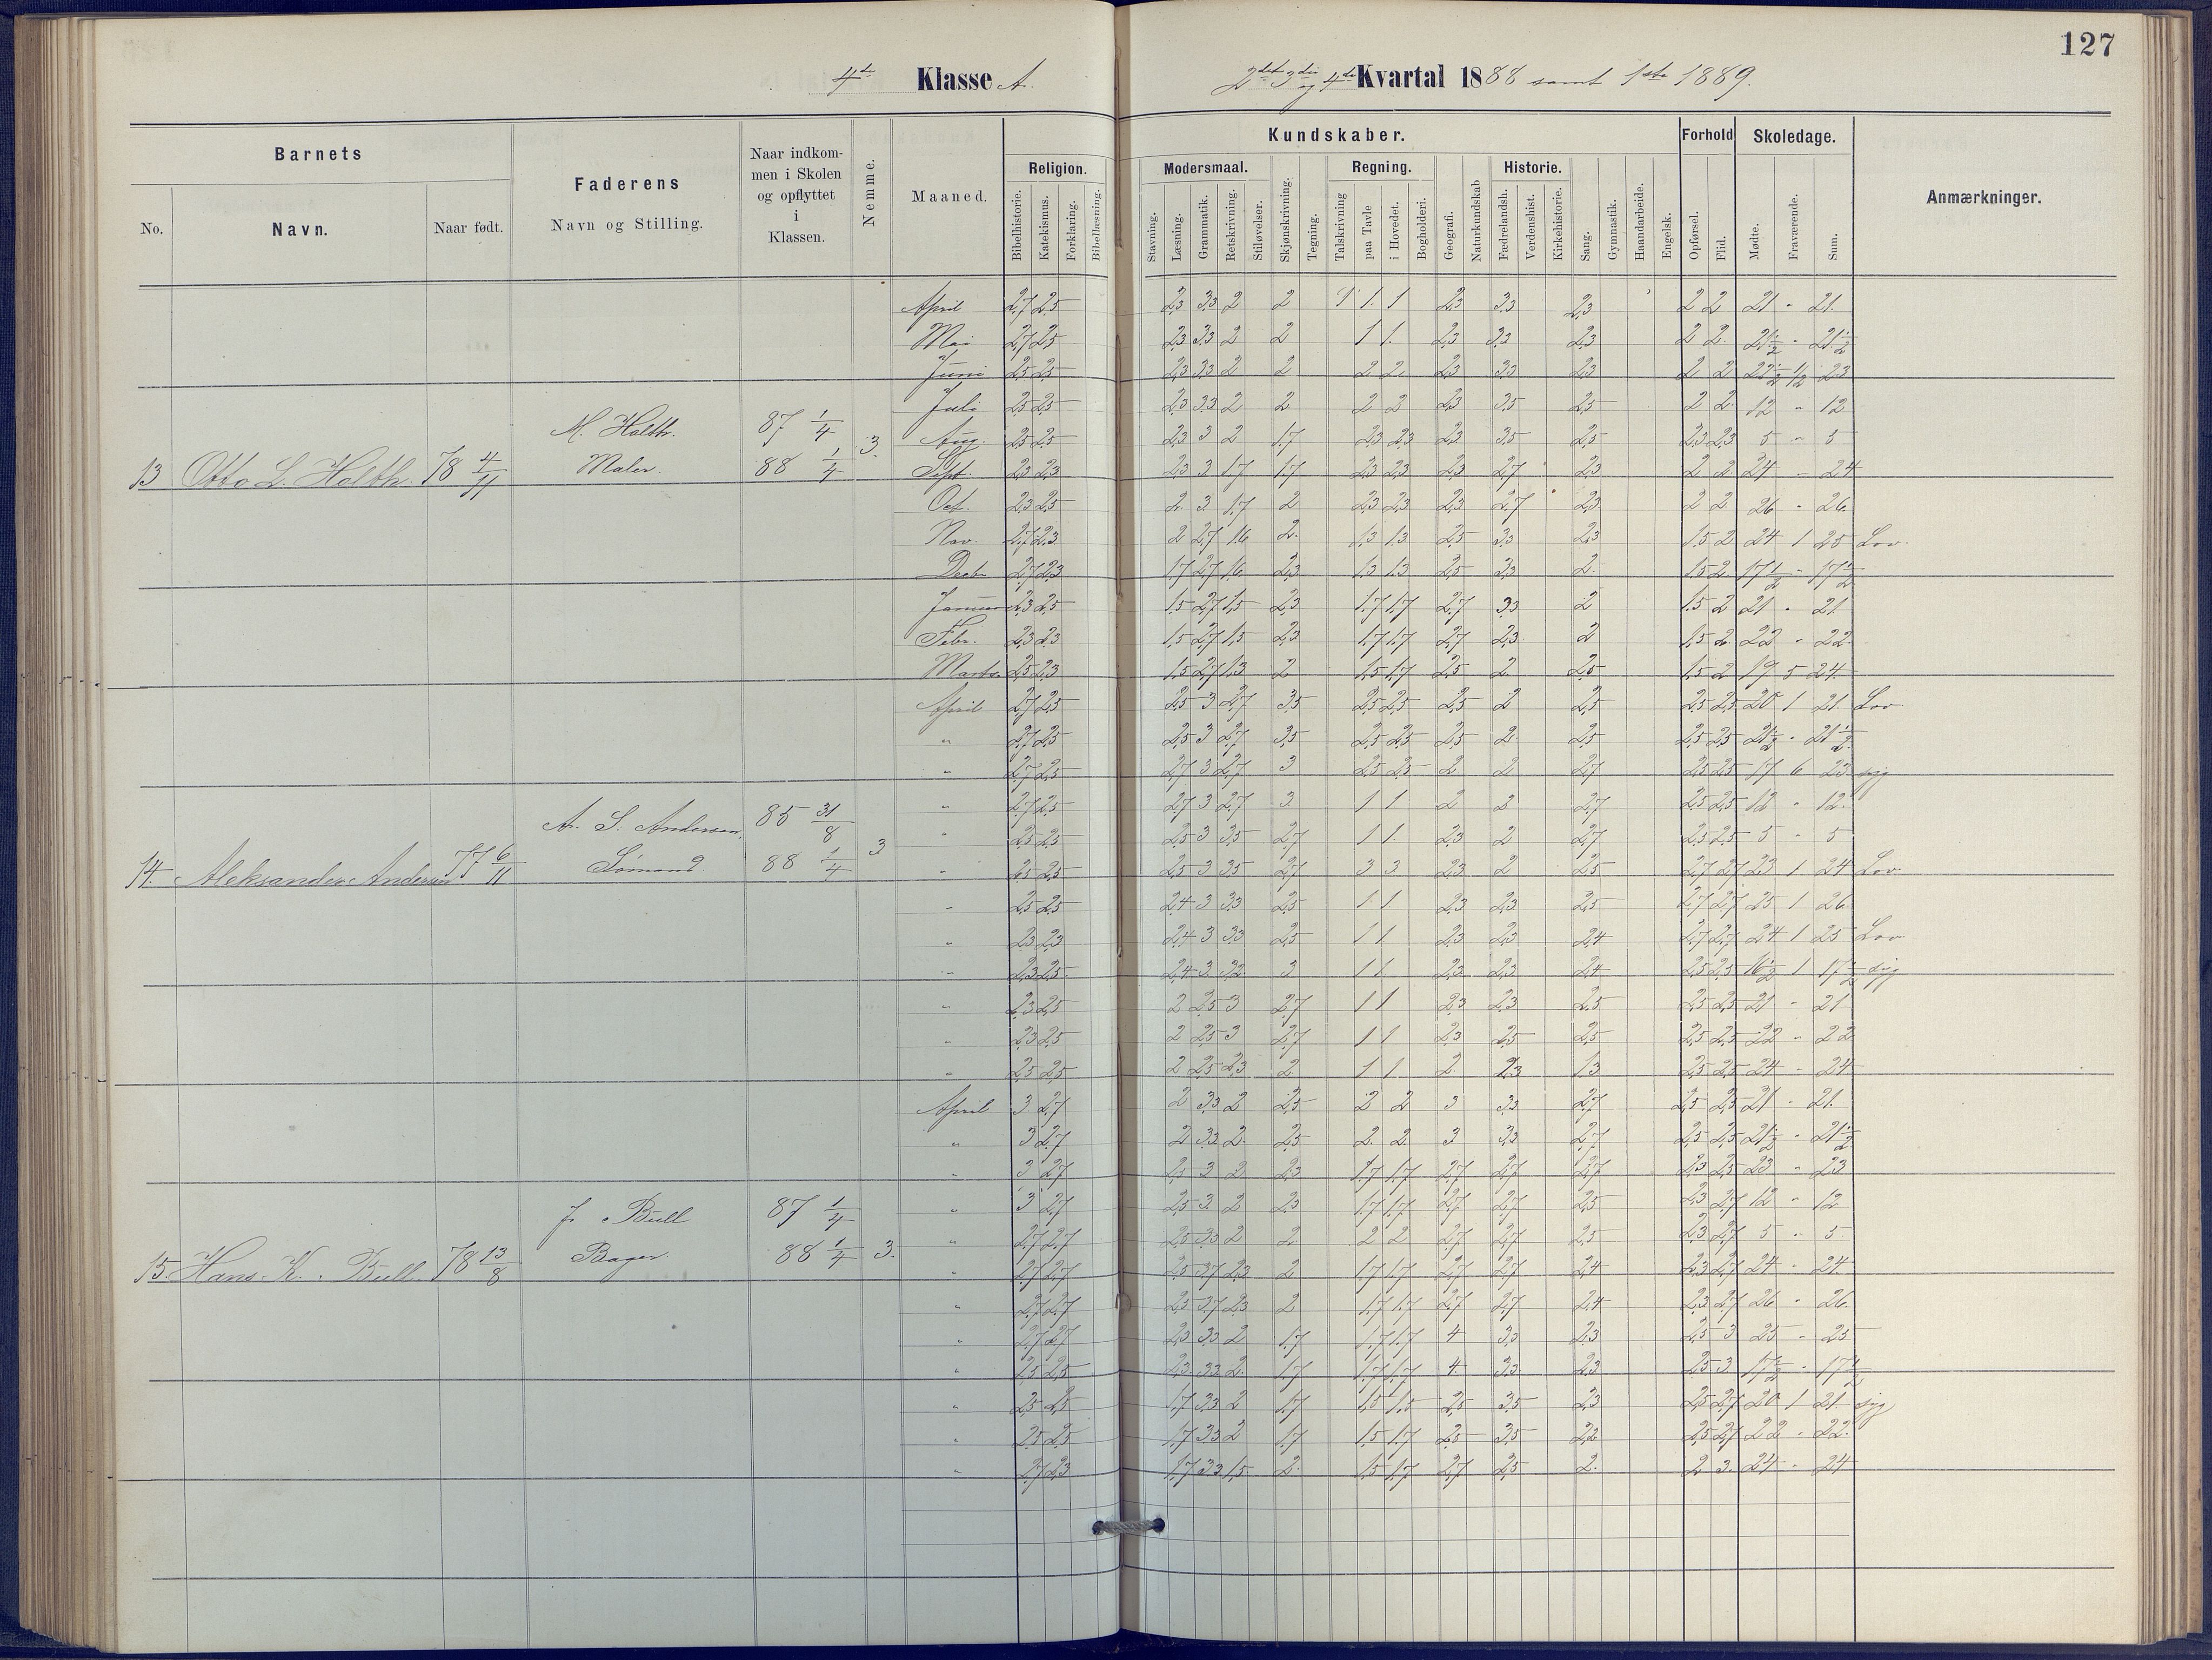 127
4de Klasse A.
2det 3die og 4de Kvartal 1888 samt 1ste 1889.
Barnets
Faderens
Naar indkommen i Skolen og opflyttet i Klassen.
Nemme.
Maaned.
Kundskaber.
Forhold
Skoledage.
Anmærkninger.
No.
Navn.
Naar født.
Navn og Stilling.
Religion.
Modersmaal.
Regning.
Historie.
Bibelhistorie.
Katekismus.
Forklaring.
Bibellæsning.
Stavning.
Læsning.
Grammatik.
Retskrivning.
Stiløvelser.
Skjønskrivning.
Tegning.
Talskrivning
paa Tavle
i Hovedet.
Bogholderi.
Geografi.
Naturkundskab
Fædrelandsh.
Verdenshist.
Kirkehistorie.
Sang.
Gymnastik.
Haandarbeide.
Engelsk.
Opførsel.
Flid.
Mødte.
Fraværende.
Sum.
April 2,7 2,5 2,3 3,3 2 2 1 1 1 2,3 3,3 2,3 2 2 21 - 21.
Mai 2,7 2,5 2,3 3,3 2 2 1 1. 2,3 3,3 2,3 2 2. 21½ - 21½
Juni 2,5 2,5 2,3 3,3 2 2 2 2. 2,3 3,3 2,3 2 2 22½ ½ 23
Juli 2,5 2,5 2,3 3,3 2 2 2 2 2,3 3,5 2,5 2 2. 12 - 12
M. Holth. 87 1/4 3. Aug. 2,5 2,5 2,3 3 2 1,7 2,3 2,3 2,3 3,5 2,5 2,3 2,3 5 - 5
13 Otto L. Holth. 78 4/11 Maler. 88 1/4 Sept. 2,3 2,3 2,3 3 1,7 1,7 2,3 2,3 2,3 2,7 2,3 2 2. 24 - 24
Oct. 2,3 2,5 2 3 1,7 2 2,3 2,3 2,3 2,7 2,3 2 2 26 - 26.
Nov. 2,7 2,3 2 2,7 1,6 2. 1,3 1,3 2,5 3,3 2,3 1,5 2 24 1 25 Lov.
Decbr 2,7 2,3 1,7 2,7 1,6 2,3 1,3 1,3 2,5 2,3 2. 1,5 2. 17½ - 17½
Januar 2,3 2,5 1,5 2,7 1,5 2,3 1,7 1,7 2,7 3,3 2 1,5 2 21 - 21.
Febr. 2,3 2,3 1,5 2,7 1,5 2,3 1,7 1,7 2,7 2,3 2 1,5 2. 22 - 22.
Marts 2,5 2,3 1,5 2,7 1,3 2 1,5 1,7 2,5 2. 2,5 1,5 2 19 5 24.
April 2,7 2,5 2,5 3 2,7 3,5 2,5 2,5 2,5 2 2,5 2,5 2,5 20 1 21. Lov.
" 2,7 2,5 2,5 3 2,7 3,5 2,5 2,5 2,5 2. 2,5 2,5 2,5 21½ - 21½
" 2,7 2,5 2,7 3 2,7 3 2,5 2,5 2 2 2,7 2,5 2,5 17 6 23 syg
" 2,7 2,5 2,7 3 2,7 3. 1 1 2 2 2,7 2,5 2,5 12 - 12.
A. S. Andersen, 85 31/8 3 " 2,5 2,5 2,5 3 3,5 2,7 1 1 2,3 2 2,7 2,5 2,5 5 - 5
14. Aleksander Andersen 77 6/11 Sømand. 88 1/4 " 2,5 2,5 2,5 3 3,5 2,7 3 3 2,3 2 2,5 2,7 2,7 23 1 24 Lov.
" 2,5 2,5 2,4 3 3,3 2,5 1 1 2,3 2,3 2,5 2,7 2,7 25 1 26
" 2,3 2,3 2,4 3 3,3 2,5 1 1 2,3 2,3 2,4 2,7 2,7 24 1 25 Lov
" 2,3 2,5 2,4 3 3,2 3 1 1 2,3 2,3 2,4 2,5 2,5 16½ 1 17½ syg
" 2,3 2,5 2 2,5 3 2,7 1 1 2,3 2,3 2,5 2,5 2,5 21 - 21
" 2,3 2,5 2 2,5 3 2,7 1 1 2,3 2,5 2,5 2,5 2,5 22 - 22
" 2,5 2,5 2 2,5 2,3 2 1 1 2. 2,3 1,3 2,5 2,5 24 - 24
April 3 2,7 2 3,3 2 2,5 2 2 3 3,3 2,7 2,5 2,5 21 - 21.
" 3 2,7 2 3,3 2. 2,5 2. 2 3 3,3 2,7 2,5 2,5 21½ - 21½
" 3 2,7 2,5 3 2 2,3 1,7 1,7 2,7 2,7 2,7 2,3 2,5 23 - 23
J. Bull 87 1/4 " 3 2,7 2,5 3 2 2,3 1,7 1,7 2,7 2,7 2,5 2,3 2,7 12 - 12
" 2,7 2,7 2,5 3,3 2 2. 2 2 2,7 2,7 2,5 2,3 2,7 5 - 5.
15. Hans K. Bull. 78 13/8 Bager. 88 1/4 3. " 2,7 2,7 2,5 3,7 2,3 2 1,7 1,7 2,7 2,7 2,4 2,3 2,7 24 - 24.
" 2,7 2,7 2,5 3,7 2,3 2 1,7 1,7 2,7 2,7 2,4 2,3 2,7 26 - 26.
" 2,7 2,7 2,3 3,3 2 1,7 1,7 1,7 4 3,3 2,3 2,5 3 25 - 25
" 2,5 2,5 2,3 3,3 2. 1,7 1,7 1,7 4. 3,3 2,3 2,5 3. 17½ - 17½
" 2,5 2,5 1,7 3,3 2 1,7 1,5 1,5 2,5 3,5 2,3 2,5 2,7 20 1 21 syg
" 2,5 2,5 1,7 3,3 2 1,7 1,5 1,7 2,5 3,5 2,2 2,5 2,7 22 - 22.
" 2,7 2,3 1,7 3,3 1,5 2. 1,5 1,7 2,7 2,5 2. 2 3. 24 - 24